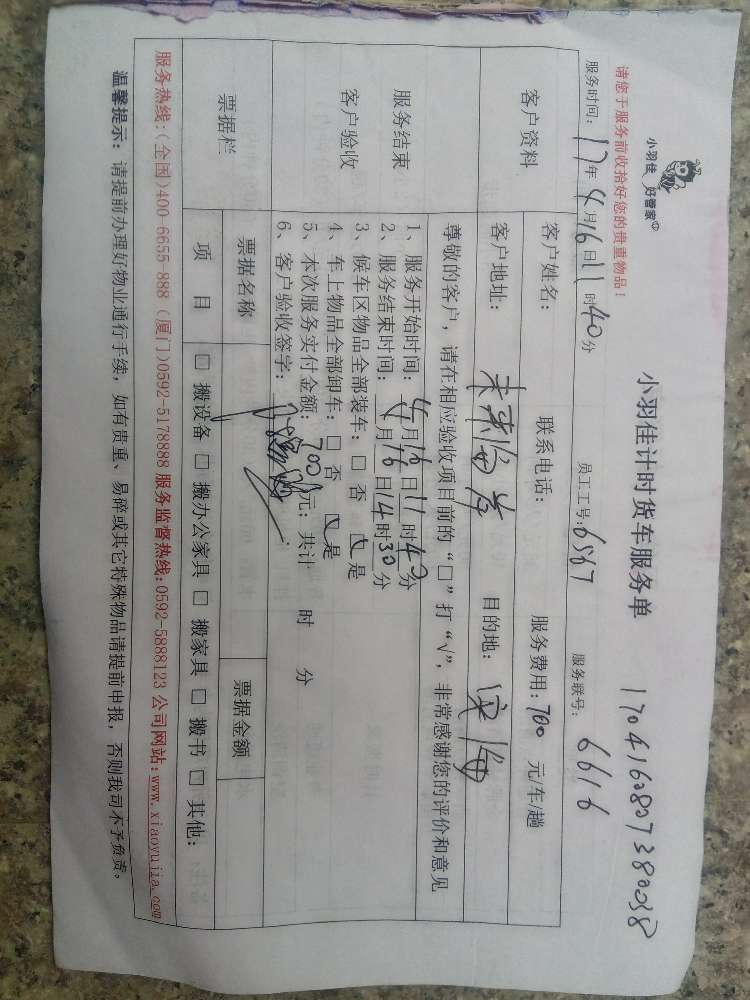 小羽佳 好管家
小羽佳计时货车服务单
170416080738038
请您于服务前收拾好您的贵重物品！
服务时间：17年4月16日11时40分 员工工号：6567 服务联号：6616
客户资料
客户姓名： 联系电话： 服务费用：700 元/车/趟
客户地址： 未来海岸 目的地：
服务结束
客户验收
尊敬的客户，请在相应验收项目前的“□”打“√”，非常感谢您的评价和意见
1、服务开始时间：4月16日11时40分
2、服务结束时间：4月16日14时30分
3、候车区物品全部装车：□ 否 ☑ 是
4、车上物品全部卸车：□ 否 ☑ 是
5、本次服务实付金额：700元；共计 时 分
6、客户验收签字：
票据栏
票据名称 票据金额
项 目 □ 搬设备 □ 搬办公家具 □ 搬家具 □ 搬书 □ 其他：
服务热线：(全国)400-6655-888 (厦门)0592-5178888 服务监督热线：0592-5888123 公司网站：www.xiaoyujia.com
温馨提示：请提前办理好物业通行手续，如有贵重、易碎或其它特殊物品请提前申报，否则我司不予负责。